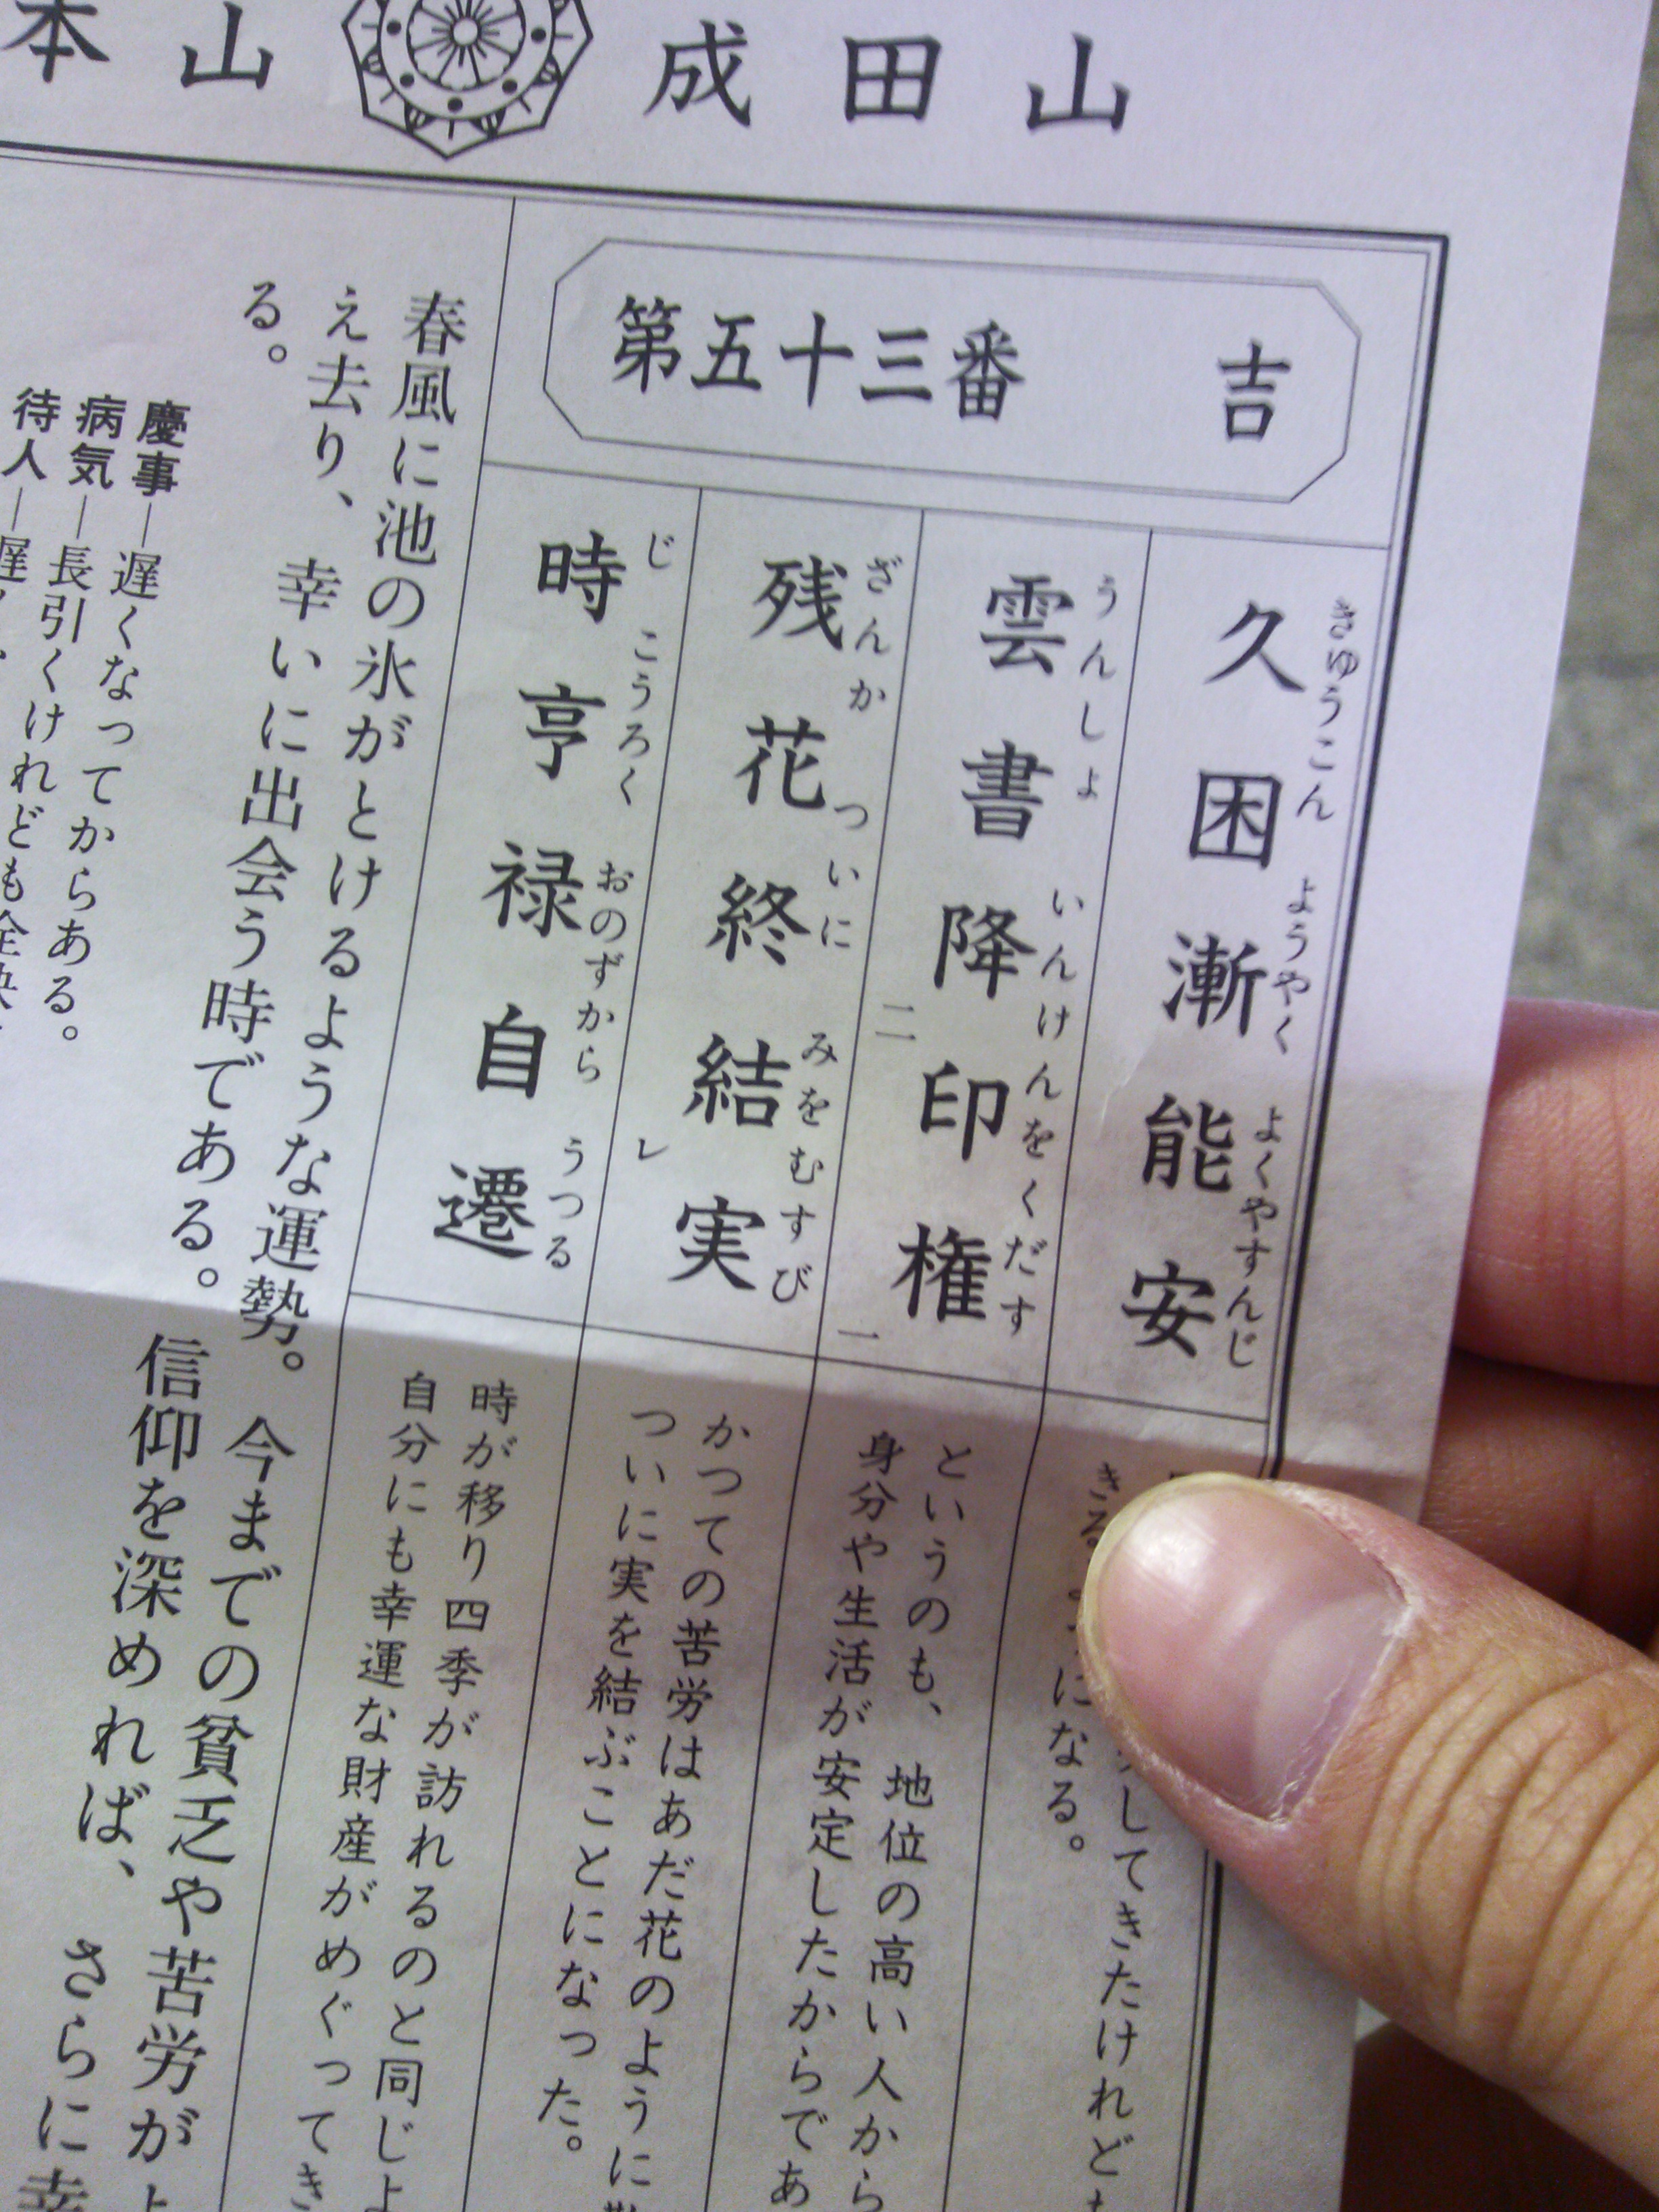 本山 成田山
第五十三番 吉
久困漸能安
きゅうこん ようやく よくやすんじ
雲書降印権
うんしょ いんけんをくだす
二 一
残花終結実
ざんか ついに みをむすび
レ
時亨禄自遷
じ こうろく おのずから うつる
してきたけれども
になる。
というのも、地位の高い人から
身分や生活が安定したからであ
かつての苦労はあだ花のように
ついに実を結ぶことになった。
時が移り四季が訪れるのと同じよ
自分にも幸運な財産がめぐってき
春風に池の氷がとけるような運勢。今までの貧乏や苦労が
え去り、幸いに出会う時である。信仰を深めれば、さらに幸
る。
慶事―遅くなってからある。
病気―長引くけれども全快
待人―遅